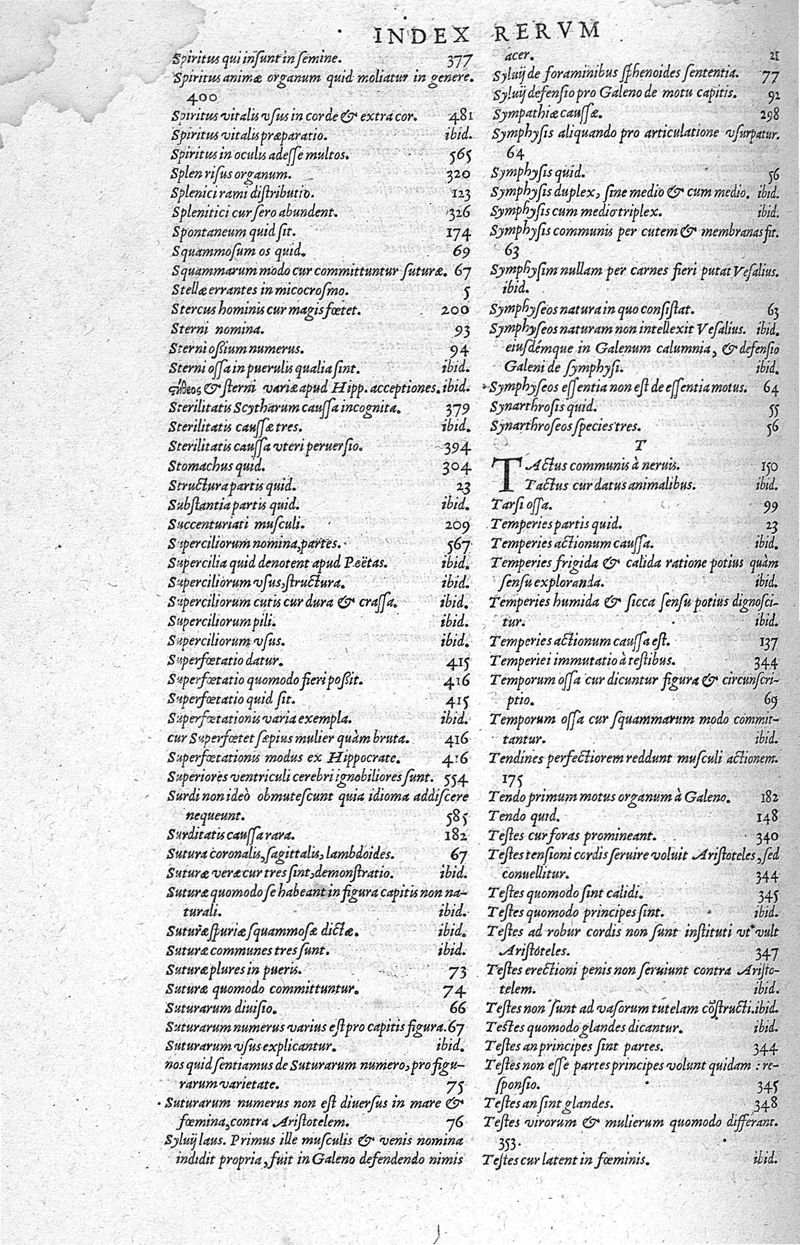 INDEX RERVM
Spiritus qui inſunt in ſemine. 377
Spiritus animæ organum quid moliatur in genere.
400
Spiritus vitalis vſus in corde & extra cor. 481
Spiritus vitalis præparatio. ibid.
Spiritus in oculis adeſſe multos. 565
Splen riſus organum. 320
Splenici rami diſtributio. 123
Splenitici cur ſero abundent. 326
Spontaneum quid ſit. 174
Squammoſum os quid. 69
Squammarum modo cur committuntur ſuturæ. 67
Stellæ errantes in micocroſmo. 5
Stercus hominis cur magis fœtet. 200
Sterni nomina. 93
Sterni oſſium numerus. 94
Sterni oſſa in puerulis qualia ſint. ibid.
& ſterni variæ apud Hipp. acceptiones. ibid.
Sterilitatis Scytharum cauſſa incognita. 379
Sterilitatis cauſſæ tres. ibid.
Sterilitatis cauſſa vteri peruerſio. 394
Stomachus quid. 304
Structura partis quid. 23
Subſtantia partis quid. ibid.
Succenturiati muſculi. 209
Superciliorum nomina, partes. 567
Supercilia quid denotent apud Poëtas. ibid.
Superciliorum vſus, ſtructura. ibid.
Superciliorum cutis cur dura & craſſa. ibid.
Superciliorum pili. ibid.
Superciliorum vſus. ibid.
Superfœtatio datur. 415
Superfœtatio quomodo fieri poſſit. 416
Superfœtatio quid ſit. 415
Superfœtationis varia exempla. ibid.
cur Superfœtet ſæpius mulier quàm bruta. 416
Superfœtationis modus ex Hippocrate. 416
Superiores ventriculi cerebri ignobiliores ſunt. 554
Surdi non ideò obmuteſcunt quia idioma addiſcere
nequeunt. 585
Surditatis cauſſa rara. 182
Sutura coronalis, ſagittalis, lambdoides. 67
Suturæ veræ cur tres ſint, demonſtratio. ibid.
Suturæ quomodo ſe habeant in figura capitis non na-
turali. ibid.
Suturæ ſpuriæ ſquammoſæ dictæ. ibid.
Suturæ communes tres ſunt. ibid.
Suturæ plures in pueris. 73
Suturæ quomodo committuntur. 74
Suturarum diuiſio. 66
Suturarum numerus varius eſt pro capitis figura. 67
Suturarum vſus explicantur. ibid.
nos quid ſentiamus de Suturarum numero, pro figu-
rarum varietate. 75
Suturarum numerus non eſt diuerſus in mare &
fœmina, contra Ariſtotelem. 76
Syluij laus. Primus ille muſculis & venis nomina
indidit propria, fuit in Galeno defendendo nimis
acer. 21
Syluij de foraminibus ſphenoides ſententia. 77
Syluij defenſio pro Galeno de motu capitis. 92
Sympathiæ cauſſæ. 298
Symphyſis aliquando pro articulatione vſurpatur.
64
Symphyſis quid. 56
Symphyſis duplex, ſine medio & cum medio. ibid.
Symphyſis cum medio triplex. ibid.
Symphyſis communis per cutem & membranas fit.
63
Symphyſim nullam per carnes fieri putat Veſalius.
ibid.
Symphyſeos natura in quo conſiſtat. 63
Symphyſeos naturam non intellexit Veſalius. ibid.
eiuſdémque in Galenum calumnia, & defenſio
Galeni de ſymphyſi. ibid.
Symphyſeos eſſentia non eſt de eſſentia motus. 64
Synarthroſis quid. 55
Synarthroſeos ſpecies tres. 56
T
TActus communis à neruis. 150
Tactus cur datus animalibus. ibid.
Tarſi oſſa. 99
Temperies partis quid. 23
Temperies actionum cauſſa. ibid.
Temperies frigida & calida ratione potius quàm
ſenſu exploranda. ibid.
Temperies humida & ſicca ſenſu potius dignoſci-
tur. ibid.
Temperies actionum cauſſa eſt. 137
Temperiei immutatio à teſtibus. 344
Temporum oſſa cur dicuntur figura & circunſcri-
ptio. 69
Temporum oſſa cur ſquammarum modo commit-
tantur. ibid.
Tendines perfectiorem reddunt muſculi actionem.
175
Tendo primum motus organum à Galeno. 182
Tendo quid. 148
Teſtes cur foras promineant. 340
Teſtes tenſioni cordis ſeruire voluit Ariſtoteles, ſed
conuellitur. 344
Teſtes quomodo ſint calidi. 345
Teſtes quomodo principes ſint. ibid.
Teſtes ad robur cordis non ſunt inſtituti vt vult
Ariſtóteles. 347
Teſtes erectioni penis non ſeruiunt contra Ariſto-
telem. ibid.
Teſtes non ſunt ad vaſorum tutelam cõſtructi. ibid.
Teſtes quomodo glandes dicantur. ibid.
Teſtes an principes ſint partes. 344
Teſtes non eſſe partes principes volunt quidam: re-
ſponſio. 345
Teſtes an ſint glandes. 348
Teſtes virorum & mulierum quomodo differant.
353.
Teſtes cur latent in fœminis. ibid.